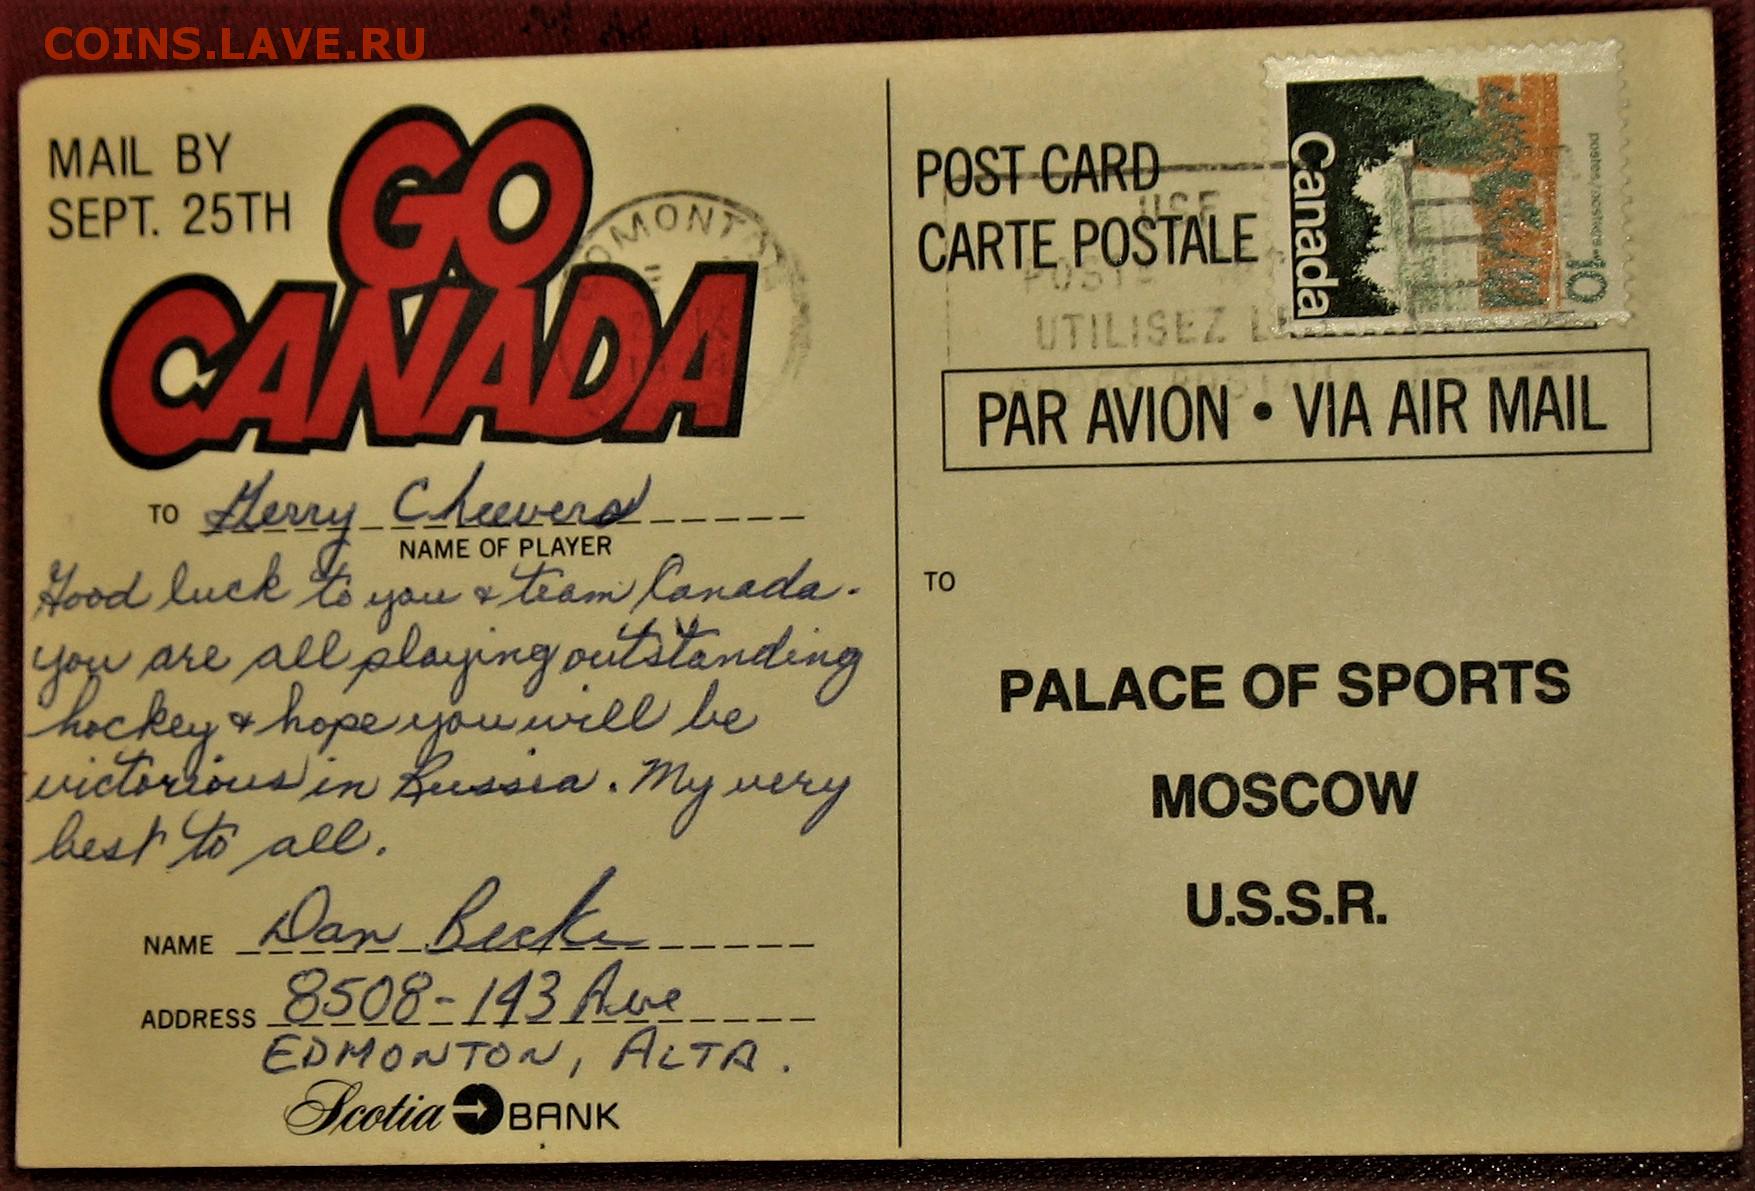 COINS.LAVE.RU
MAIL BY
SEPT. 25TH
GO
CANADA
EDMONTON
TO Gerry Cheevers
NAME OF PLAYER
Good luck to you & team Canada.
you are all playing outstanding
hockey & hope you will be
victorious in Russia. My very
best to all.
NAME Dan
ADDRESS 8508-143 Ave
EDMONTON, ALTA.
Scotia BANK
POST CARD
CARTE POSTALE
USE
UTILISEZ
Canada
postes/postage
10
PAR AVION • VIA AIR MAIL
TO
PALACE OF SPORTS
MOSCOW
U.S.S.R.